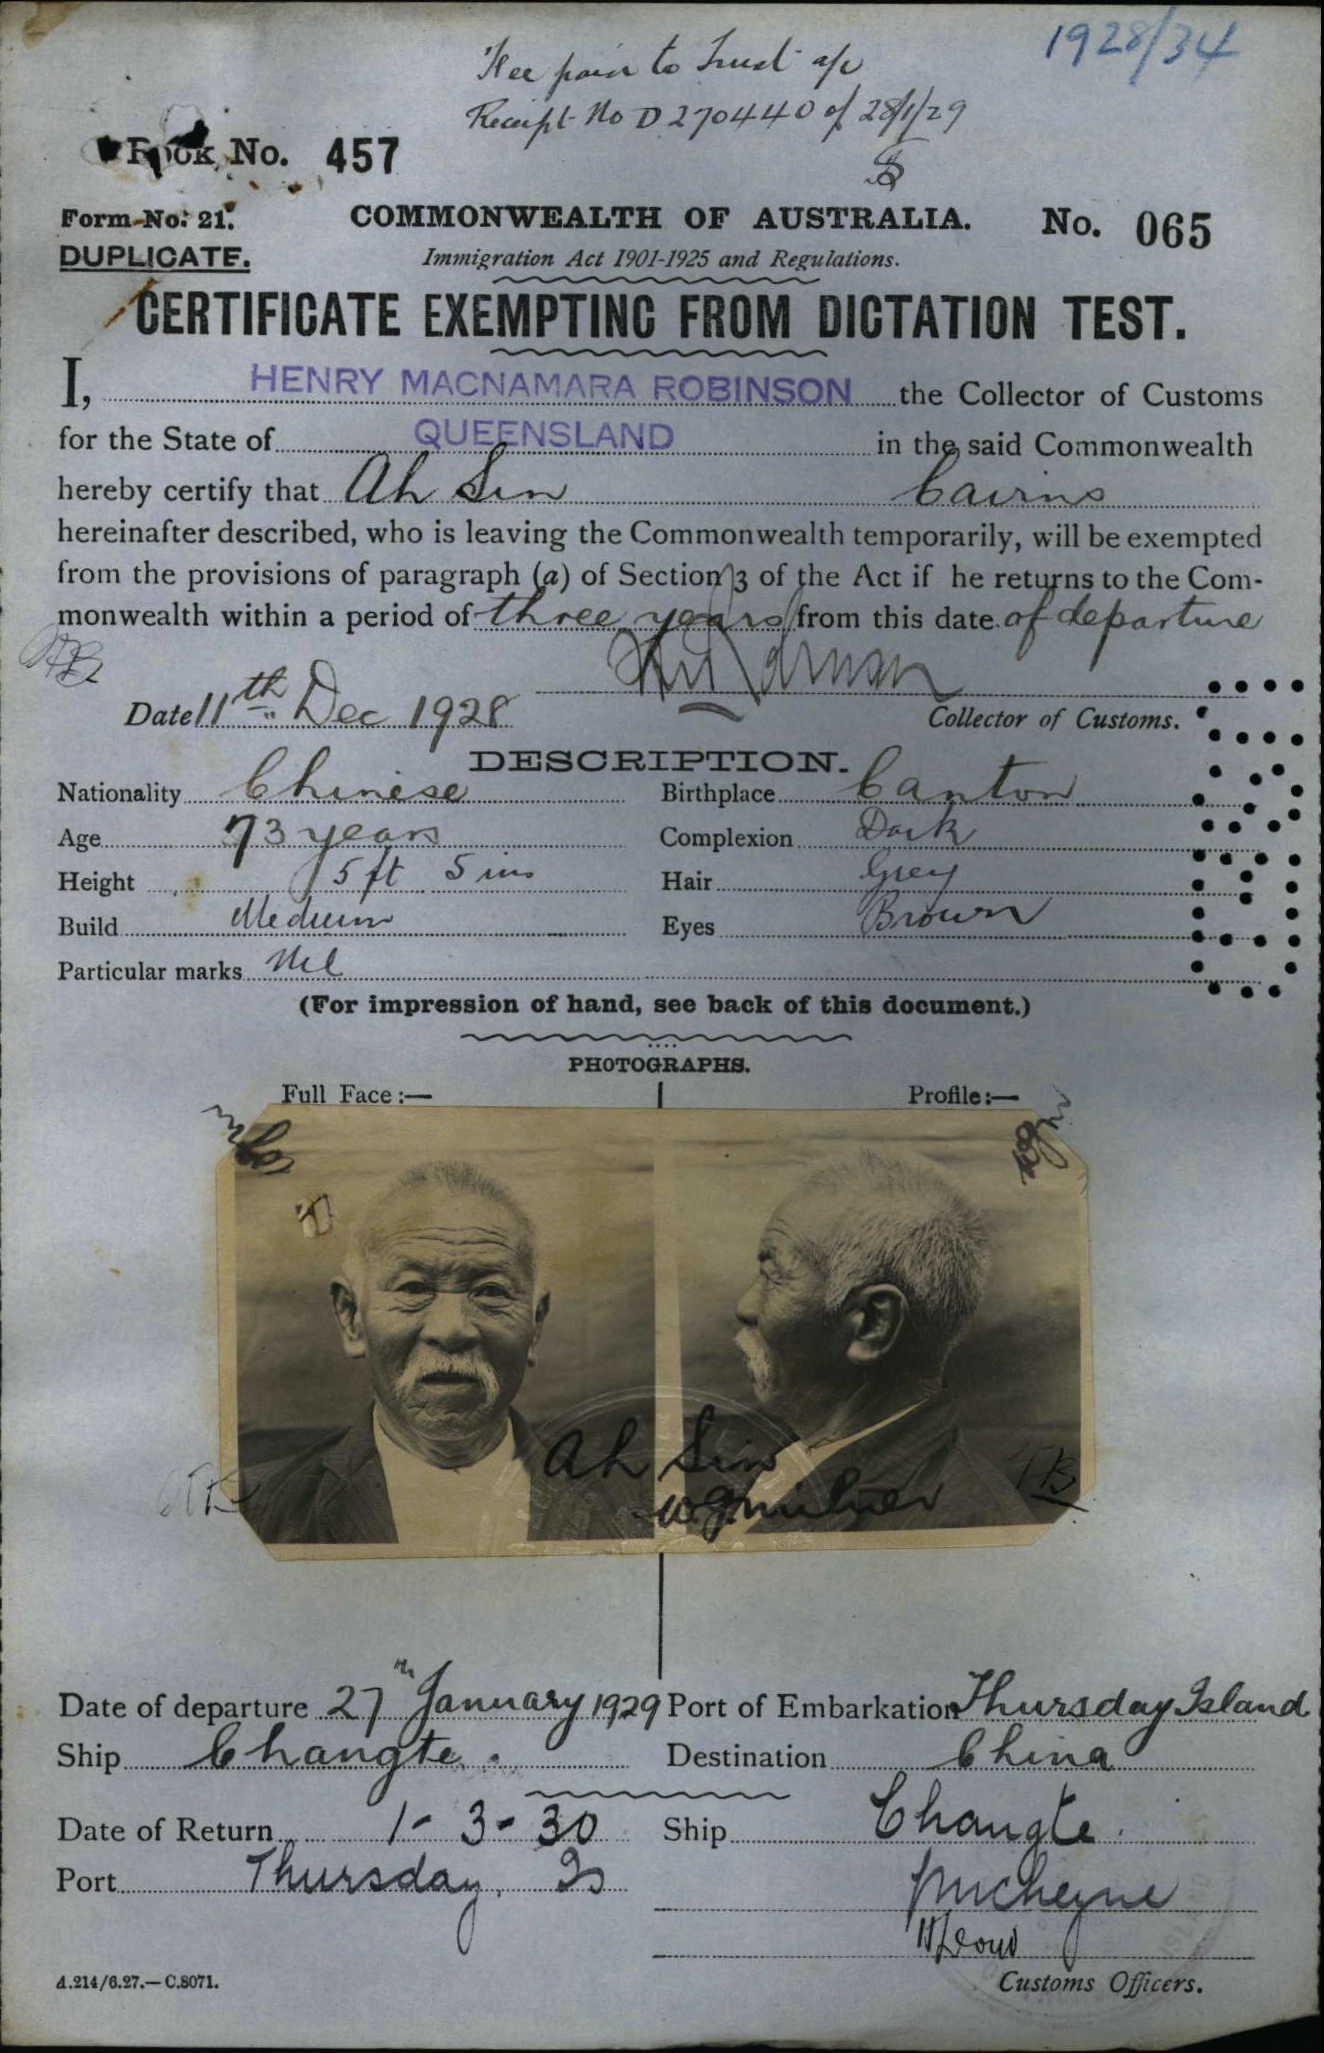 1928/34
Fee paid to Trust a/c
Receipt No D 270440 of 28/1/29
Book No. 457
Form No. 21.
COMMONWEALTH OF AUSTRALIA. No. 065
DUPLICATE.
Immigration Act 1901-1925 and Regulations.
CERTIFICATE EXEMPTING FROM DICTATION TEST.
I, HENRY MACNAMARA ROBINSON the Collector of Customs
for the State of QUEENSLAND in the said Commonwealth
hereby certify that Ah Sin Cairns
hereinafter described, who is leaving the Commonwealth temporarily, will be exempted
from the provisions of paragraph (a) of Section 3 of the Act if he returns to the Com-
monwealth within a period of three years from this date of departure
Date 11th Dec 1928
Collector of Customs.
DESCRIPTION.
Nationality Chinese Birthplace Canton
Age 73 years Complexion Dark
Height 5 ft 5 ins Hair Grey
Build Medium Eyes Brown
Particular marks Nil
(For impression of hand, see back of this document.)
PHOTOGRAPHS.
Full Face:— Profile:—
Ah Sin
W.G. Milner
Date of departure 27th January 1929 Port of Embarkation Thursday Island
Ship Changte. Destination China
Date of Return 1-3-30 Ship Changte.
Port Thursday Is
Customs Officers.
A.214/6.27.—C.8071.